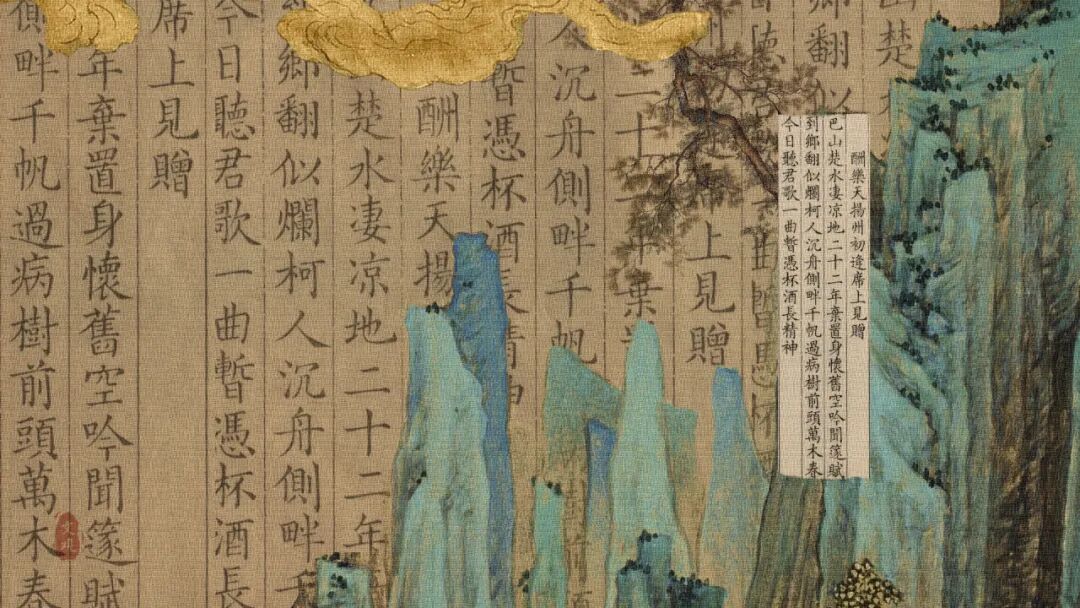 山楚
鄉翻似
酬樂天揚州初逢席上見贈
巴山楚水凄凉地二十二年棄置身懷舊空吟聞篴賦
到鄉翻似爛柯人沉舟側畔千帆過病樹前頭萬木春
今日聽君歌一曲暫憑杯酒長精神
曲暫憑杯
上見贈
二十二年棄
沉舟側畔千帆
暫憑杯酒長精神
酬樂天揚
楚水凄凉地二十二年
鄉翻似爛柯人沉舟側畔千
今日聽君歌一曲暫憑杯酒長
席上見贈
年棄置身懷舊空吟聞篴賦
側畔千帆過病樹前頭萬木春